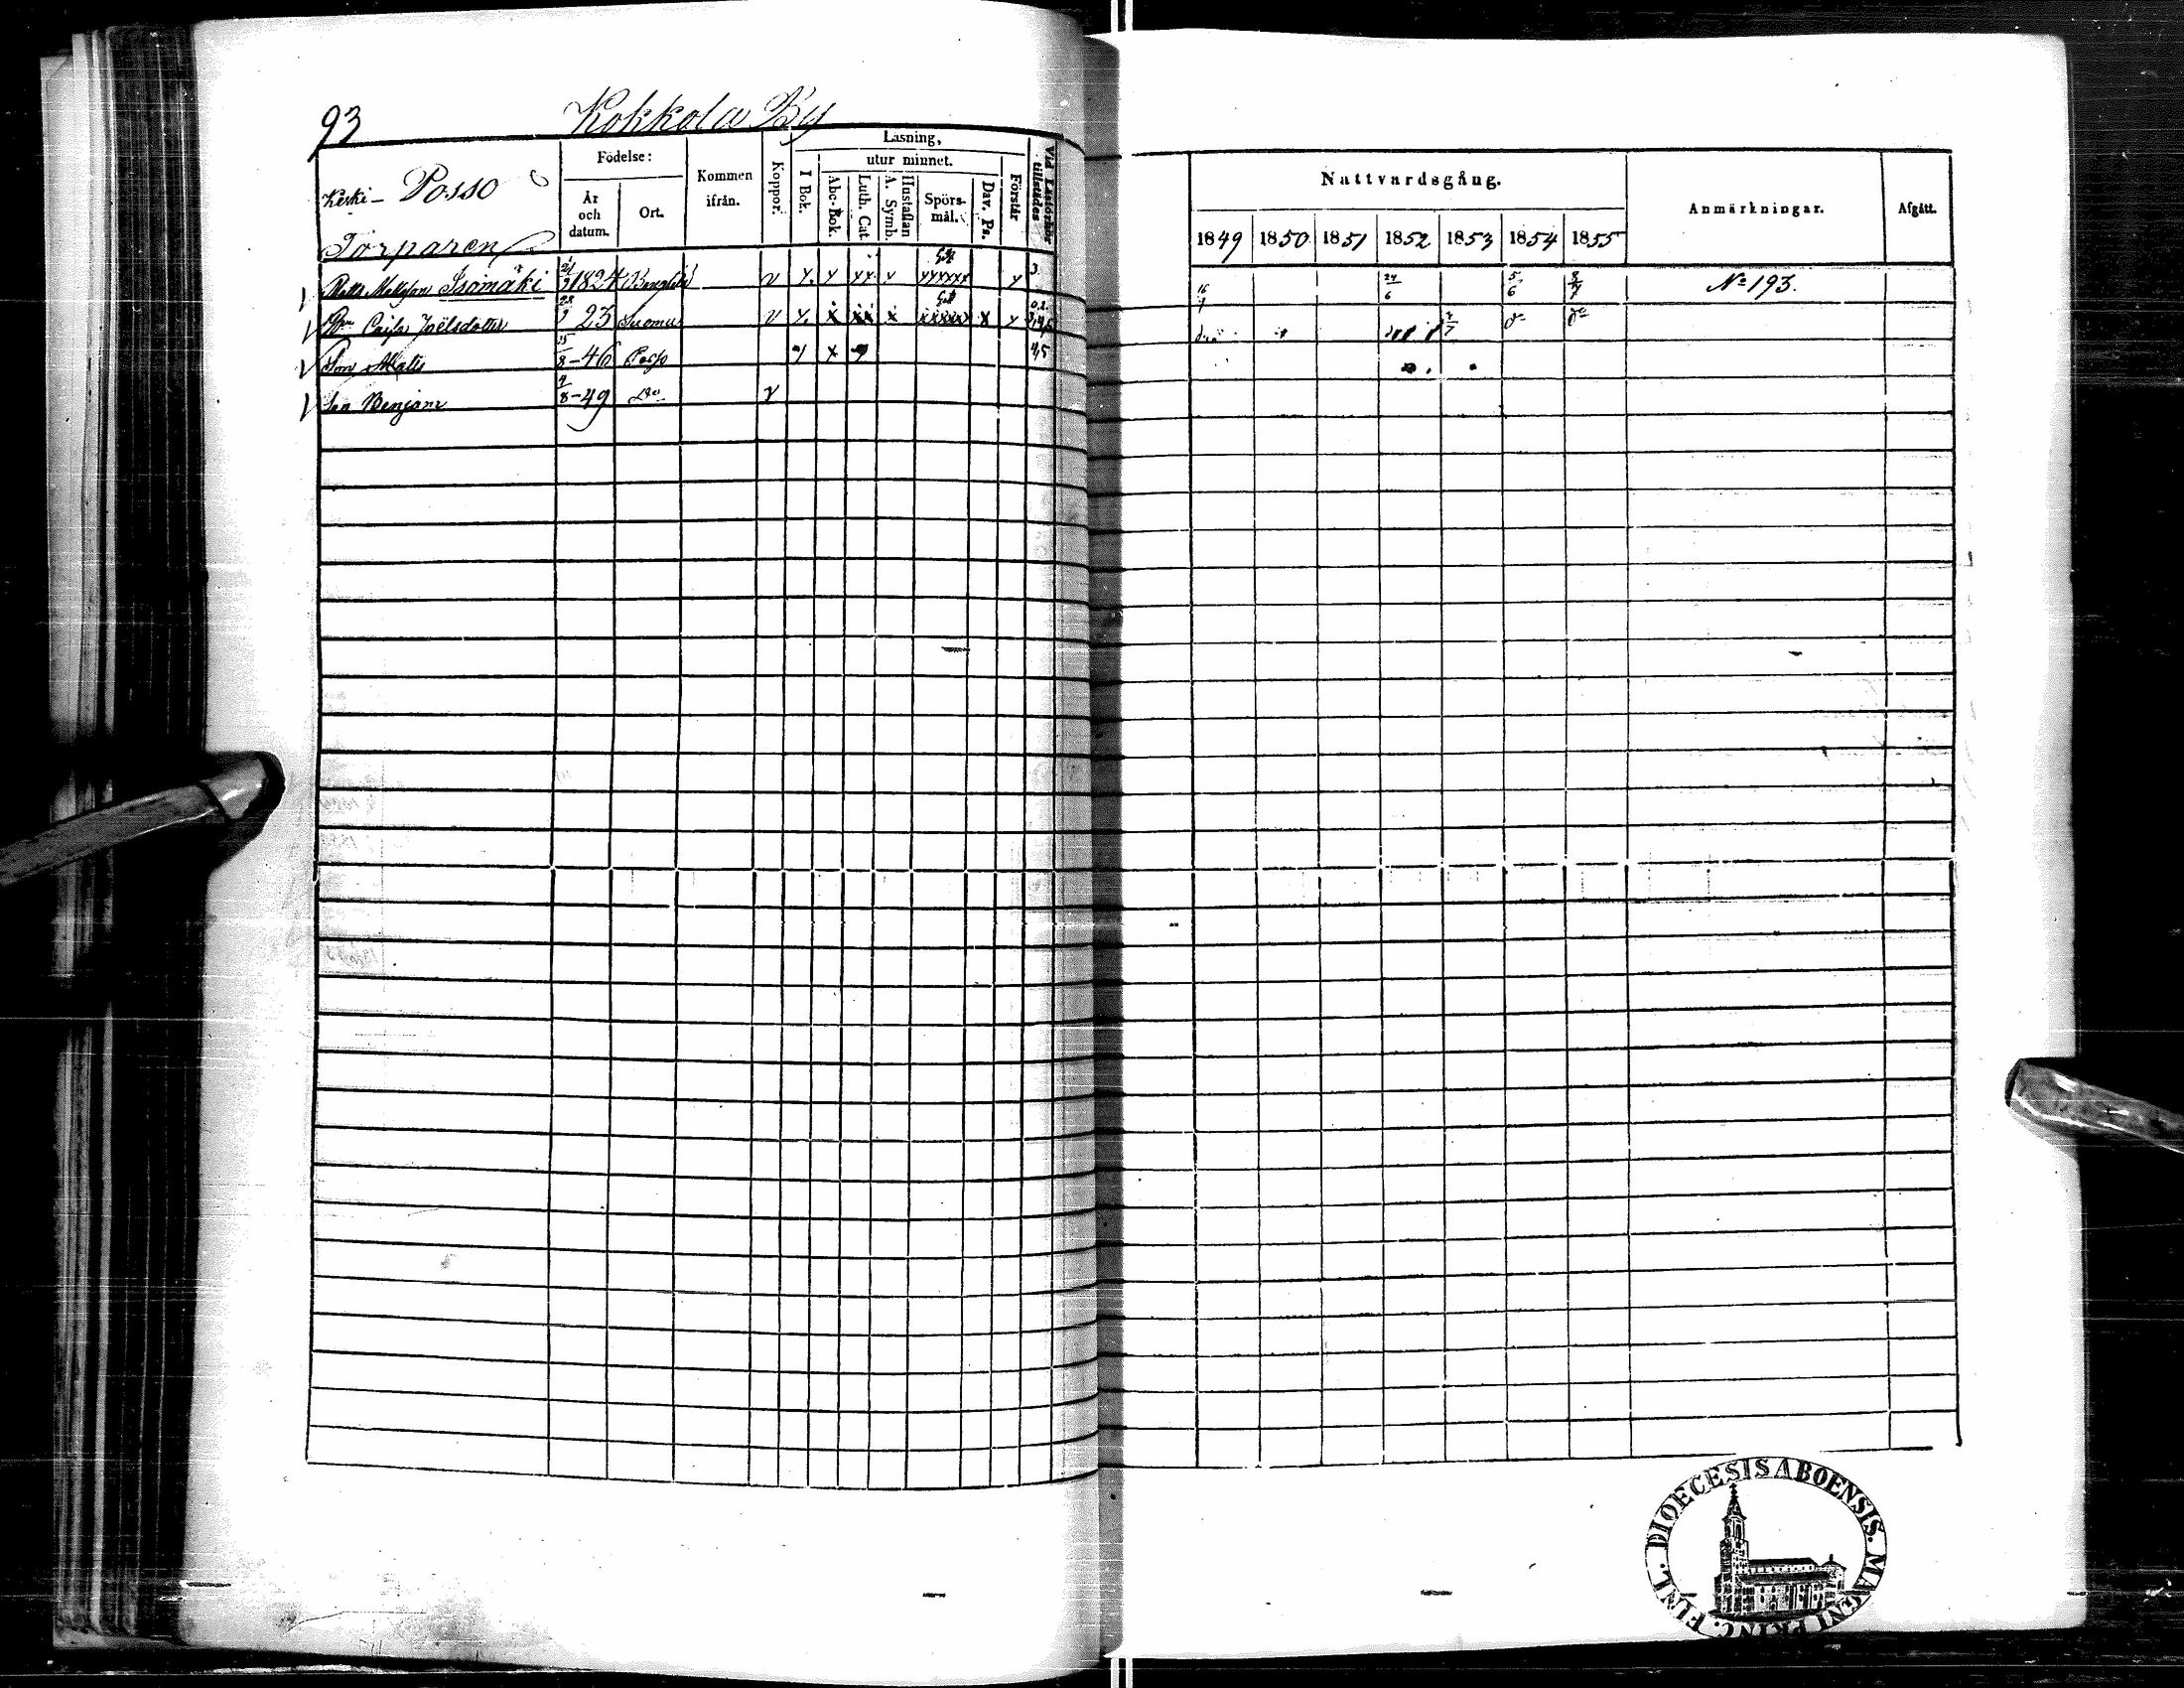 93 Kokkola By
Keski- Posso
Torparen
Födelse:
År och datum.
Ort.
Kommen ifrån.
Koppor.
Läsning,
I Bok.
utur minnet.
Abc-Bok.
Luth. Cat.
A. Symb.
Hustaflan
Spörs-mål.
Dav. Ps.
Förstår
Vid Läsförhör tillstädes
Nattvardsgång.
1849 1850 1851 1852 1853 1854 1855
Anmärkningar.
Afgått.
Matts Mattsson Isomäki 21/9 1824 v x. x xx x xxxxxx x 3. 16/9 24/6 5/6 8/7 No 193.
Caisa Joëlsdotter 28/9 23 Suomu v x. x xx x xxxxx x x 7/7 do do
Son Matts 15/8 - 46 Posso x 4,5
Son Benjam 4/8 - 49 Do v
FINL. DIOECESIS ABOENSIS. MAGNI PRINC.